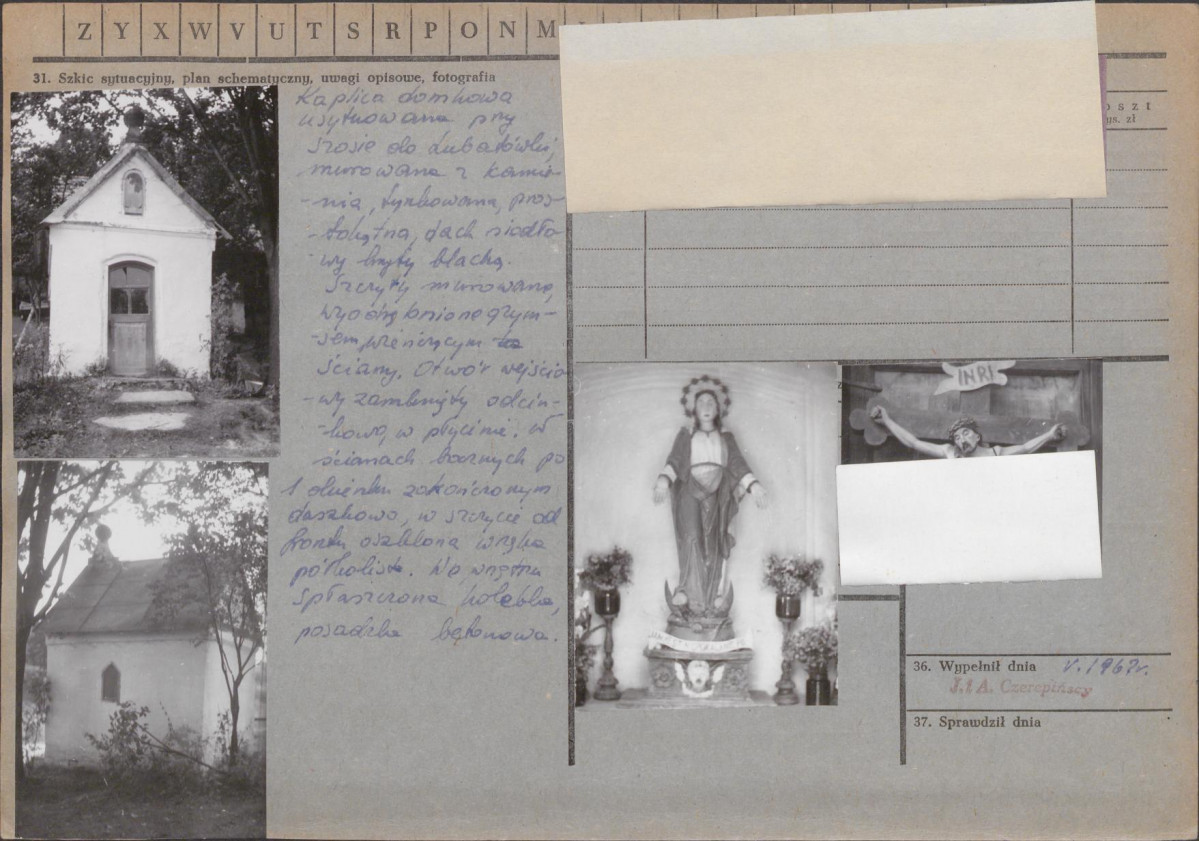 Z Y X W V U T S R P O N M
31. Szkic sytuacyjny, plan schematyczny, uwagi opisowe, fotografia
Kaplica domkowa
usytuowana przy
szosie do Lubatówki,
murowana z kamie-
-nia, tynkowana, pros-
-tokątna, dach siodło-
-wy kryty blachą.
Szczyty murowane,
wyodrębnione gzym-
-sem wieńczącym
ściany. Otwór wejścio-
-wy zamknięty odcin-
-kowo, w płycinie. W
ścianach bocznych po
1 okienku zakończonym
daszkowo, w szczycie od
frontu oszklona wnęka
półkolista. We wnętrzu
spłaszczona kolebka,
posadzka betonowa.
oszt
ys. zł
INRI
36. Wypełnił dnia V. 1967r.
J. i A. Czerepińscy
37. Sprawdził dnia